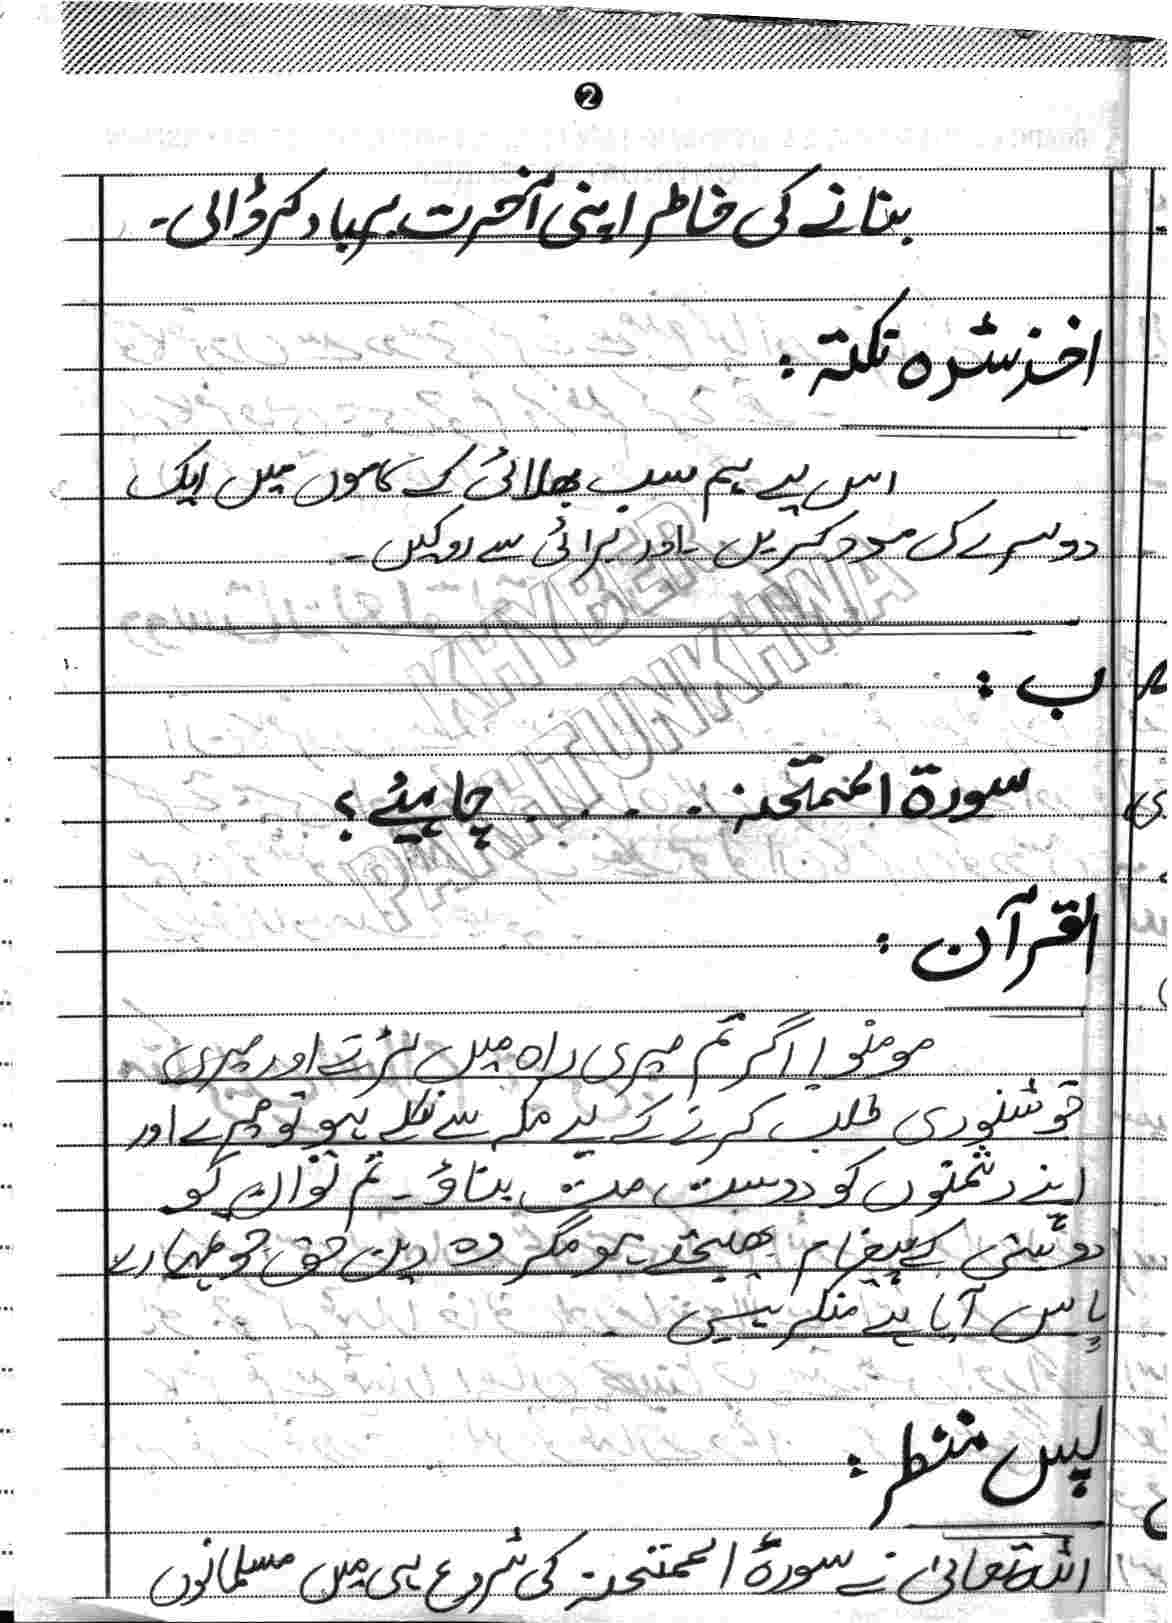 2
بنانے کی خاطر اپنی آخرت برباد کر ڈالی۔
اخذ شدہ نکتہ :
اس لیے ہم سب بھلائی کے کاموں میں ایک
دوسرے کی مدد کریں اور برائی سے روکیں۔
KHYBER
PAKHTUNKHWA
ب :
سورۃ الممتحنہ . . . . . چاہیئے ؟
القرآن :
مومنو! اگر تم میری راہ میں لڑتے اور میری
خوشنودی طلب کرنے کے لیے مکہ سے نکلے ہو تو میرے اور
اپنے دشمنوں کو دوست مت بناؤ۔ تم تو ان کو
دوستی کے پیغام بھیجتے ہو مگر وہ دین حق جو تمہارے
پاس آیا ہے منکر ہیں
پس منظر :
اللہ تعالیٰ نے سورۃ الممتحنہ کی شروع ہی میں مسلمانوں